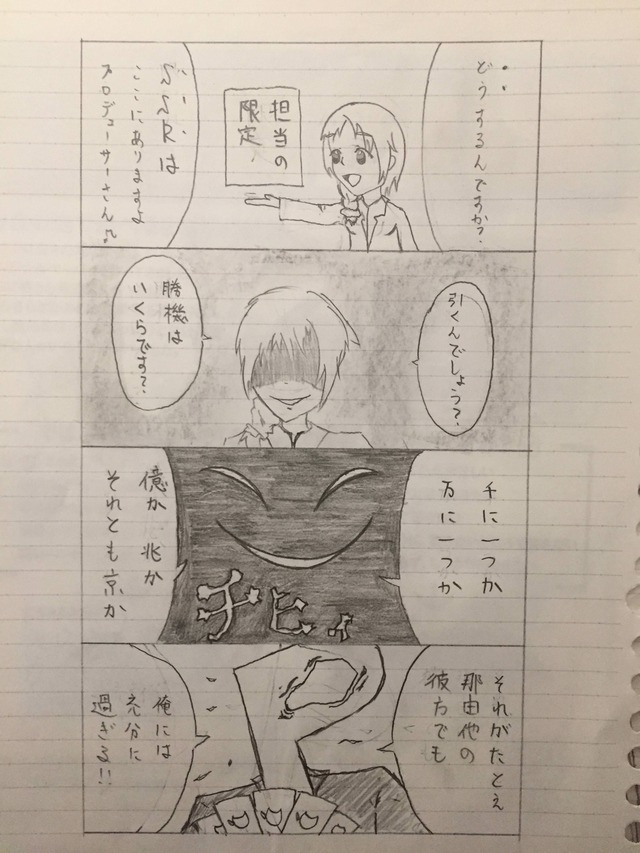 どうするんですか?
担当の
限定
SSRは
ここにありますよ
プロデューサーさん♫
引くんでしょう?
勝機は
いくらです?
千に一つか
万に一つか
億か 兆か
それとも京か
チヒィ
それがたとえ
那由他の
彼方でも
P
俺には
充分に
過ぎる!!